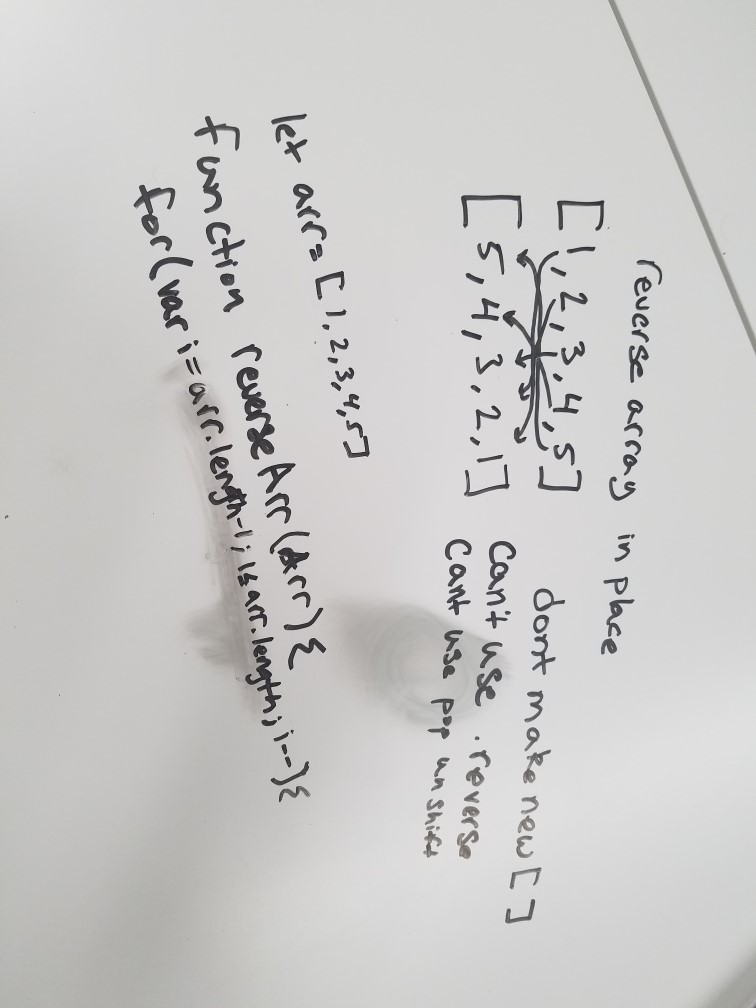 reverse array in place
[1,2,3,4,5]
[5,4,3,2,1]
dont make new []
Can't use .reverse
Cant use pop unshift
let arr = [1,2,3,4,5]
function reverseArr(Arr){
for(var i=arr.length-1; i≤arr.length; i--){